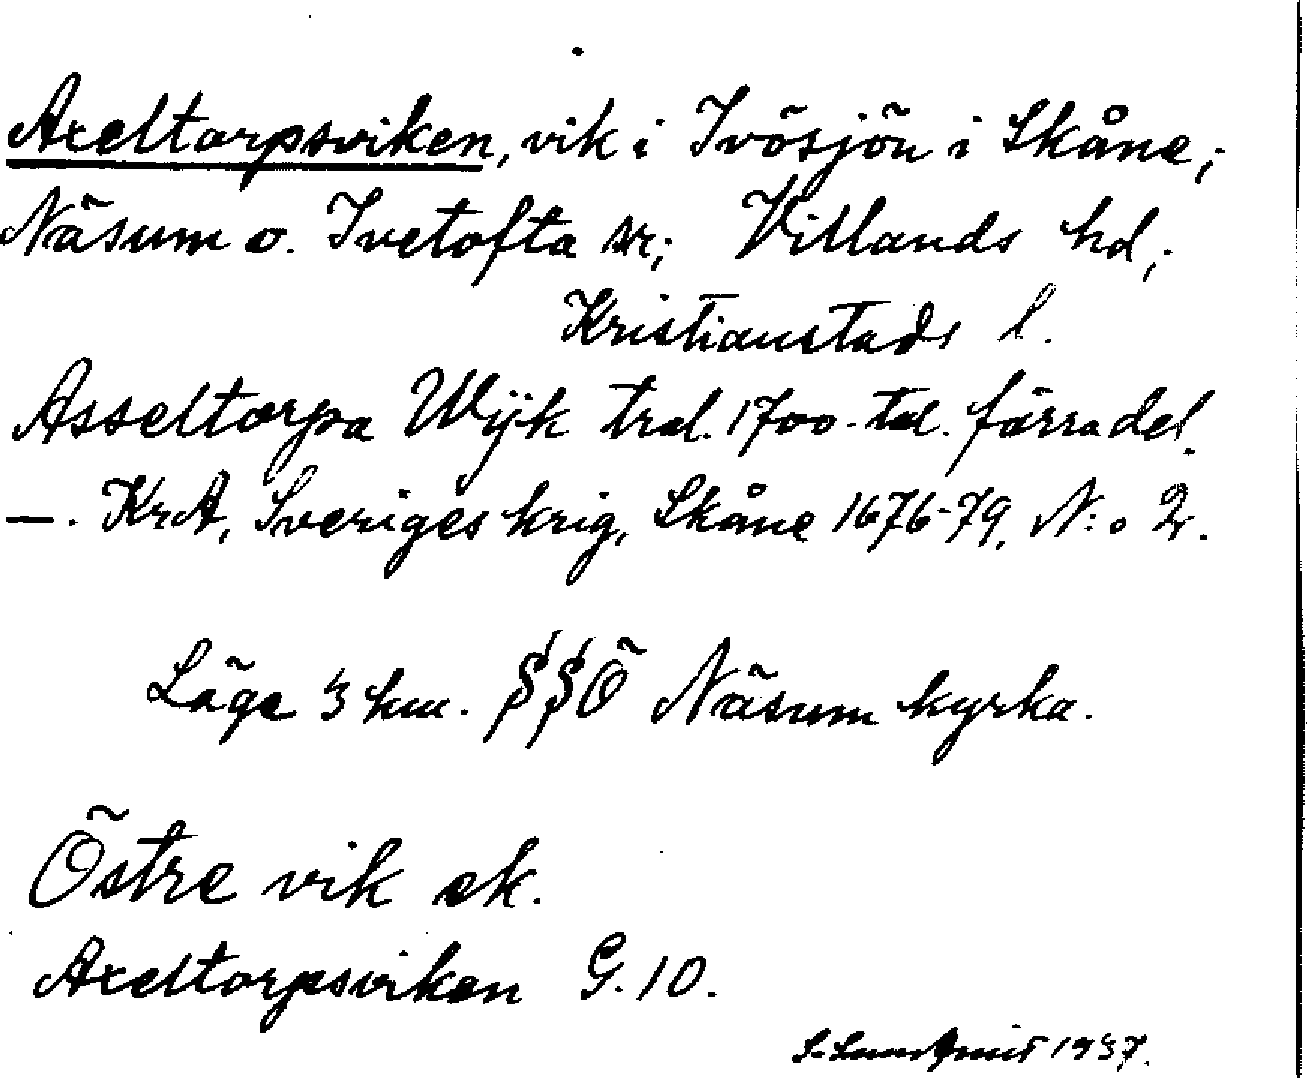 Axeltorpsviken, vik i Ivösjön i Skåne;
Näsum o. Ivetofta sr; Villands hd;
Kristianstads l.
Asseltorpa Wijk trol. 1700-tal. förra del.
—. KrA, Sveriges krig, Skåne 1676-79. N:o 2.
Läge 3 km. SSÖ Näsum kyrka.
Östre vik ek.
Axeltorpsviken G. 10.
S. Lundqvist 1937.